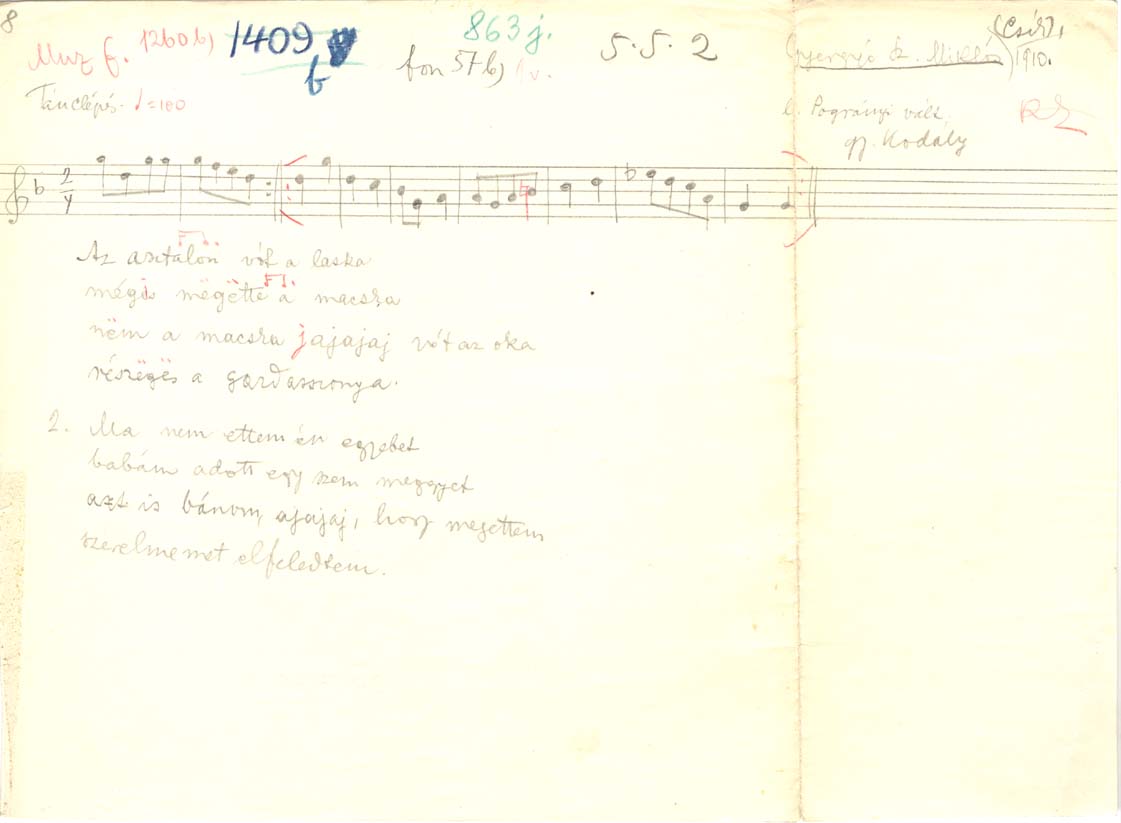 8
Muz f. 1260 b) 1409 b
863 j.
fon 57 b) v.
5. 5. 2
Gyergyó Sz. Miklós (Csík), 1910.
Tánclépés. ♩=180
l. Pogrányi vált.
gy. Kodály
RZ
2
4
Az asztalon vót a laska
mégis mëgëtte a macska
nëm a macska jajajaj vót az oka
részëgës a gazdasszonya.
2. Ma nem ettem én egyebet
babám adott egy szem meggyet
azt is bánom, ajajaj, hogy megettem
szerelmemet elfeledtem.